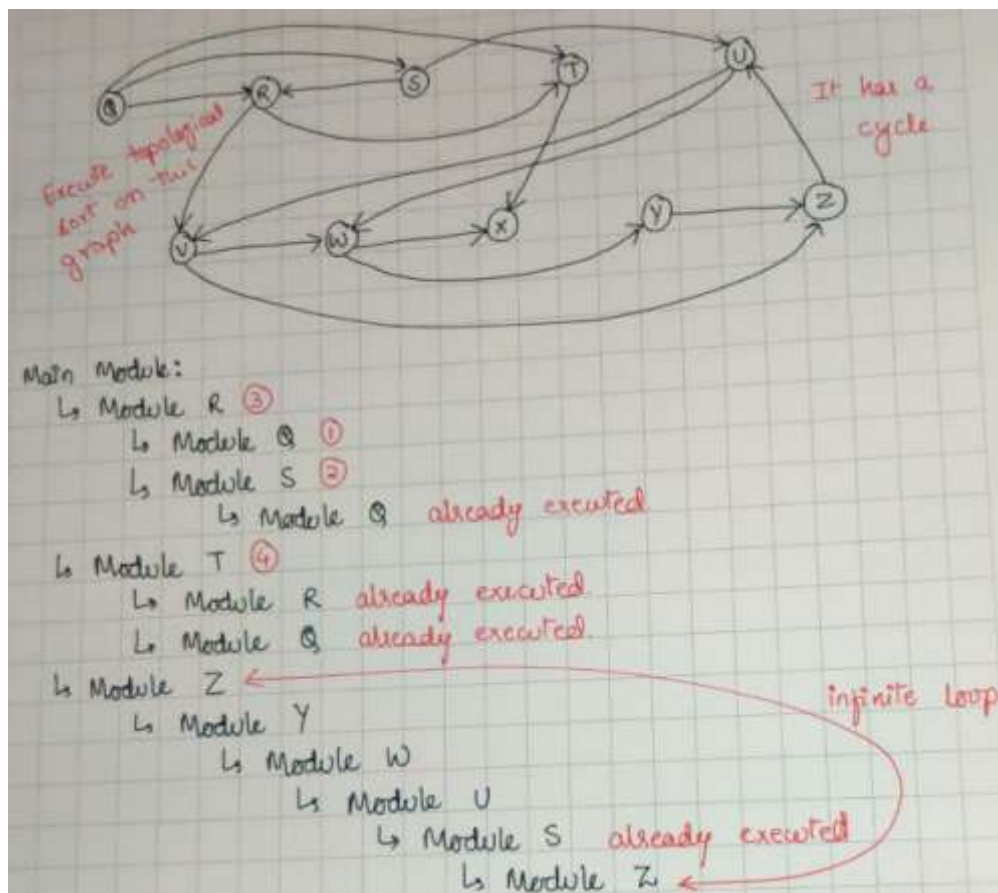 Q R S T U
Execute topological
sort on this
graph
It has a
cycle
V W X Y Z
Main Module:
↳ Module R ③
↳ Module Q ①
↳ Module S ②
↳ Module Q already executed
↳ Module T ④
↳ Module R already executed
↳ Module Q already executed
↳ Module Z
infinite loop
↳ Module Y
↳ Module W
↳ Module U
↳ Module S already executed
↳ Module Z